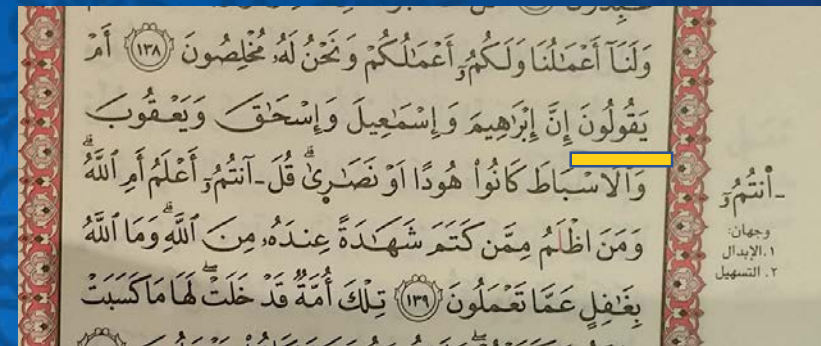 وَلَنَآ أَعْمَٰلُنَا وَلَكُمُۥٓ أَعْمَٰلُكُمْ وَنَحْنُ لَهُۥ مُخْلِصُونَ ١٣٨ أَمْ
يَقُولُونَ إِنَّ إِبْرَٰهِيمَ وَإِسْمَٰعِيلَ وَإِسْحَٰقَ وَيَعْقُوبَ
وَٱلَاسْبَاطَ كَانُوا۟ هُودًا اَوْ نَصَٰرِىٰۖ قُلَ ـآنتُمُۥٓ أَعْلَمُ أَمِ ٱللَّهُۖ
وَمَنَ اظْلَمُ مِمَّن كَتَمَ شَهَٰدَةً عِندَهُۥ مِنَ ٱللَّهِۖ وَمَا ٱللَّهُ
بِغَٰفِلٍ عَمَّا تَعْمَلُونَ ١٣٩ تِلْكَ أُمَّةٌ قَدْ خَلَتْۖ لَهَا مَا كَسَبَتْ
ـأٰنتُمُۥٓ
وجهان:
١. الإبدال
٢. التسهيل